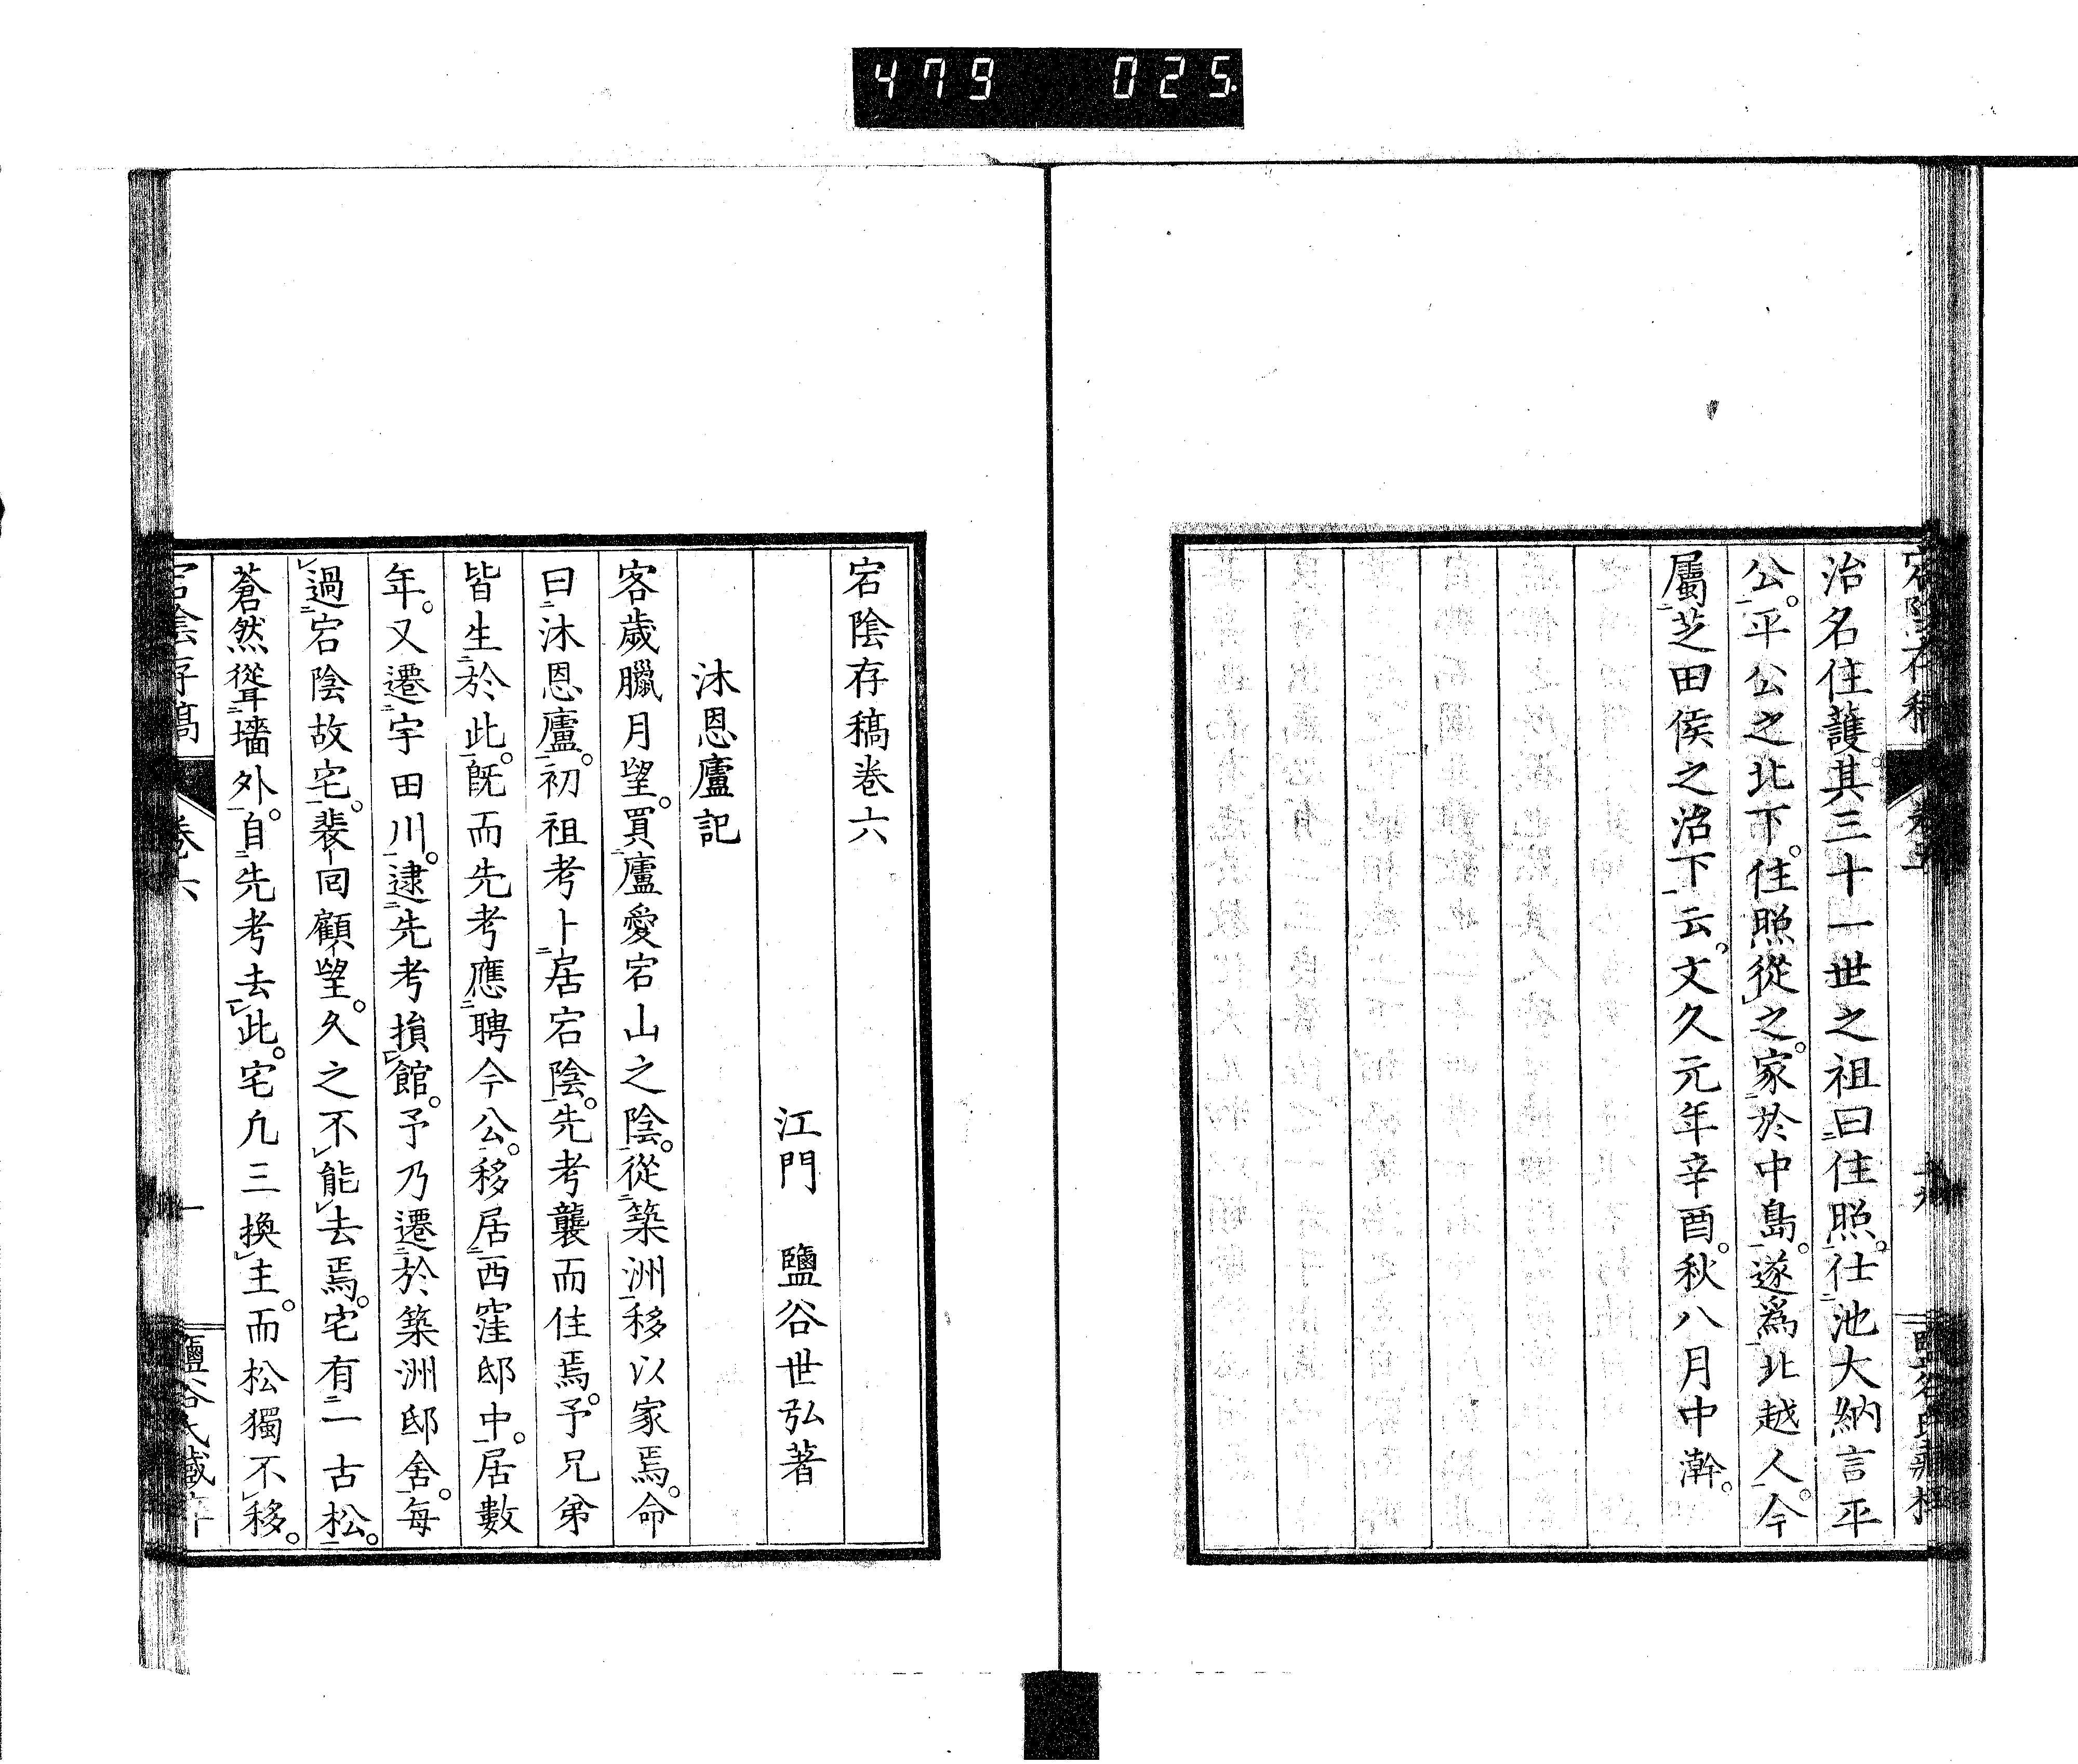 479 025
治名住護其三十一世之祖曰住照。仕池大納言平
公。平公之北下。住照從之。家於中島。遂爲北越人。今
屬芝田侯之治下云。文久元年辛酉。秋八月中澣。
宕陰存稿卷六
江門 鹽谷世弘著
沐恩廬記
客歲臘月望。買廬愛宕山之陰。從築洲移以家焉。命
曰沐恩廬。初祖考卜居宕陰。先考襲而住焉。予兄弟
皆生於此。既而先考應聘今公。移居西窪邸中。居數
年。又遷宇田川。逮先考損館。予乃遷於築洲邸舍。每
過宕陰故宅。裴回顧望。久之不能去焉。宅有一古松。
蒼然聳墻外。自先考去此。宅凢三換主。而松獨不移。